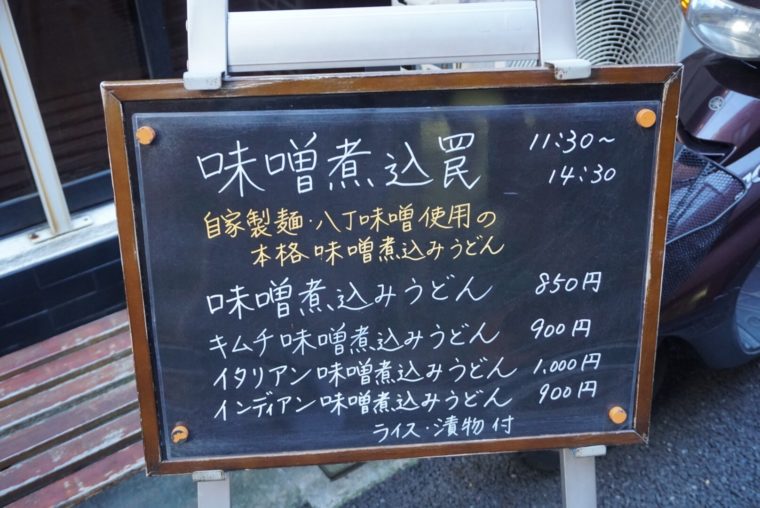 味噌煮込罠
11:30～
14:30
自家製麺・八丁味噌使用の
本格味噌煮込みうどん
味噌煮込みうどん 850円
キムチ味噌煮込みうどん 900円
イタリアン味噌煮込みうどん 1,000円
インディアン味噌煮込みうどん 900円
ライス・漬物付